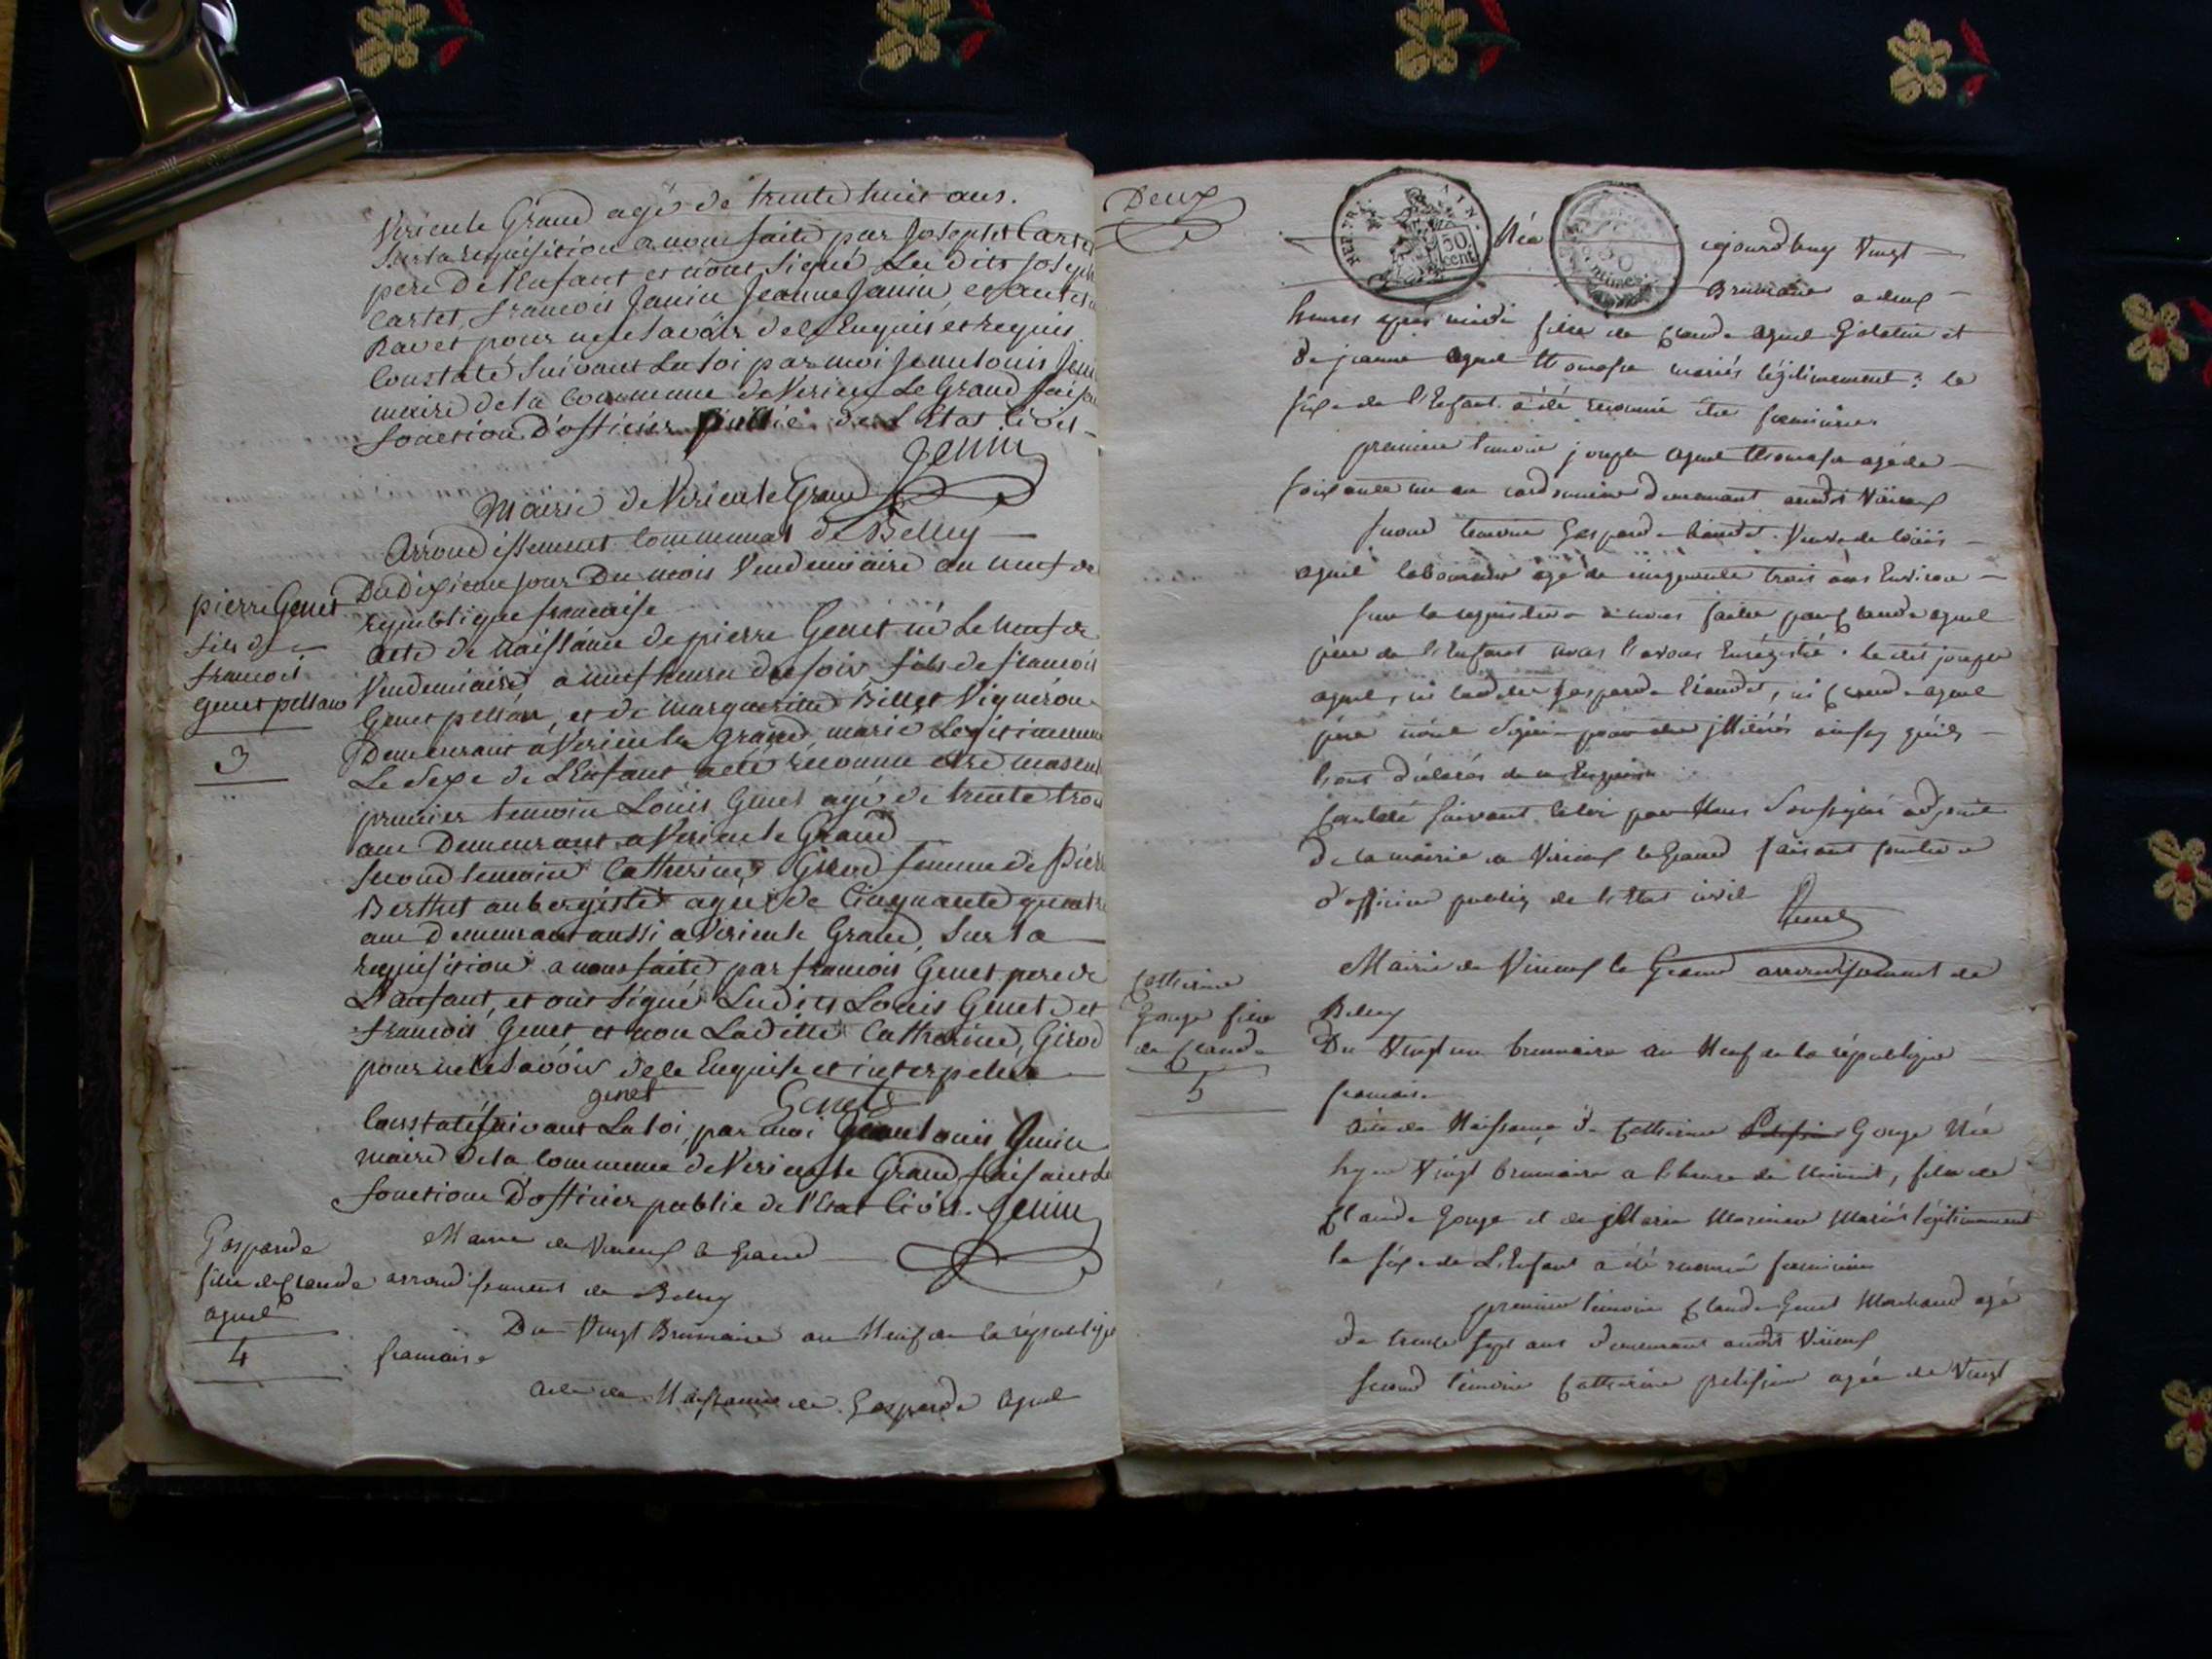 Virieu le Grand agé de trente huit ans.
Sur la requisition a nous faite par Joseph Cartet
pere de l'Enfant et nont signé Les dits joseph
Cartet, francois Janin Jeanne Janin, et autet
Ravet pour ne le savoir de ce Enquis et requis
Constaté suivant La Loi par moi Jean Louis Jenin
maire de la Commune de Virieu Le Grand faisant
fonction D'officier publie de L'Etat Civil
Jenin
Mairie de Virieu le Grand
Arrondissement Communal de Belley
pierre Genet
fils de
francois
genet pellan
3
Du Dixieme jour Du mois Vendemiaire an neuf de
republique francaise
acte de Naissance de pierre Genet né Le neuf de
Vendemiaire, a neuf heures du soir fils de francois
Genet pellan, et de Marguerite Billet Vigneron
Demeurant à Virieu le grand, marié Legitimement
Le sexe de L'Enfant a été reconnu etre mascul
premier temoin Louis Genet agé de trente trois
ans Demeurant a Virieu le Grand
second temoin Catherine Girod femme de Pierre
Berthet aubergiste agée de Cinquante quatre
ans Demeurant aussi a Virieu le Grand, Sur la
requisition a nous faite par francois Genet pere de
L'anfant, et ont signé Ludits Louis Genet et
francois Genet et non Ladite Catherine, Girod
pour ne le savoir de ce Enquise et interpellée
genet Genet
Constaté suivant La Loi, par moi Jean Louis Jenin
maire de la Commune de Virieu le Grand faisant Les
fonctions D'officier publie de l'Etat Civil. Jenin
Gasparde
fille de Claude
aguel
4
Mairie de Virieux le Grand
arrondissement de Belley
Du Vingt Brumaire an Neuf de la république
francaise
acte de Naissance de Gasparde Aguel
Deux
REP. FRA.
50
cent.
50
Née cejourdhuy Vingt
Brumaire a deux
heures après midi fille de Claude aguel Golatin et
de jeanne aguel Thomasse mariés légitimement: le
sexe de l'Enfant a été reconnu être feminin
premier temoin joseph aguel Thomasse agé de
soixante un an cordonnier demeurant audit Virieux
second temoin Gasparde Veuve de Louis
aguel laboureur agé de cinquante trois ans Environ
sur la requisition à nous faite par Claude aguel
père de l'Enfant nous l'avons Enrégistré. le dit joseph
aguel, ni ladite Gasparde ni Claude aguel
père n'ont signé pour être illitérés ainsy qu'ils
l'ont déclarés de ce Enquis
Constaté suivant la loi par Nous soussigné adjoint
de la mairie de Virieux le Grand faisant fonction
d'officier public de l'Etat civil
Mairie de Virieux le Grand arrondissement de
Belley
Catherine
Gouge fille
de Claude
5
Du Vingt un brumaire an Neuf de la république
francaise
acte de Naissance de Catherine Gouge Née
hyer Vingt brumaire a l'heure de Minuit, fille de
Claude Gouge et de Marie Mariés légitimement
le sexe de L'Enfant a été reconnu feminin
premier temoin Claude Genet Marchand agé
de trente sept ans demeurant audit Virieux
second temoin Catherine petission agée de Vingt